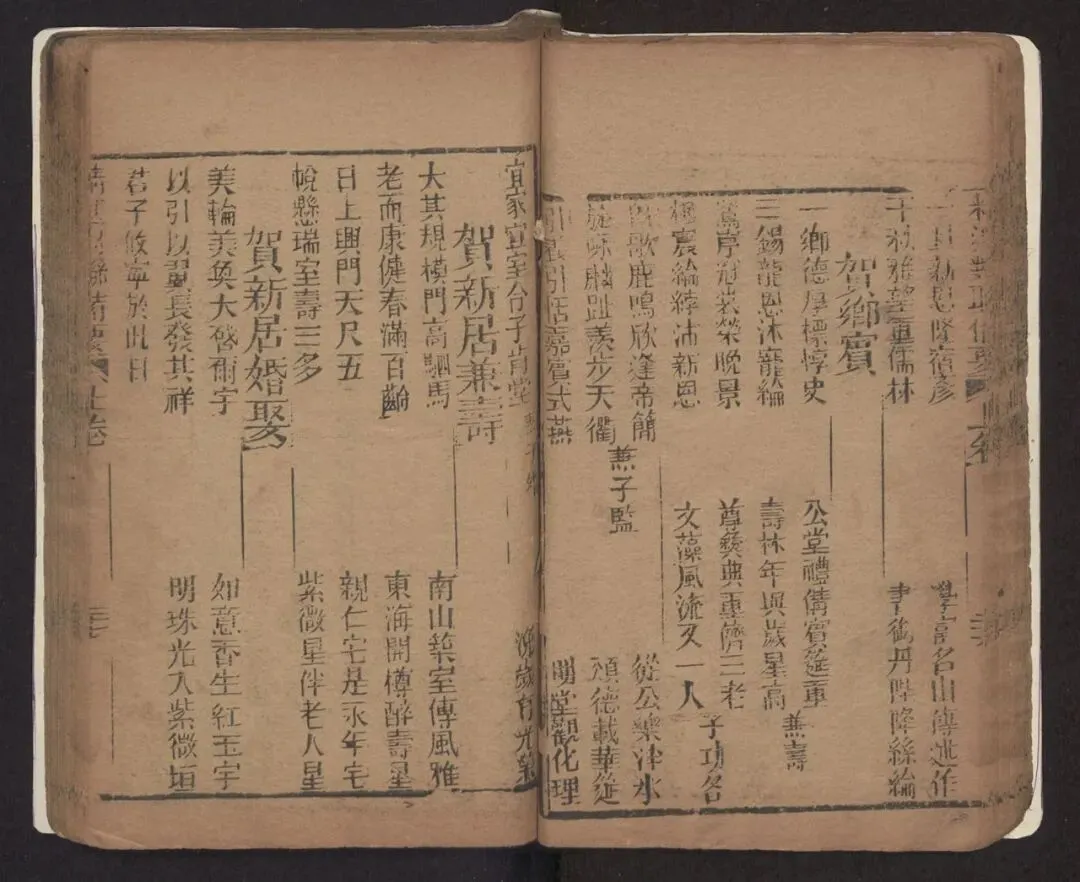 新恩隆
學富名山傳述作
千秋雅望重儒林
書衡丹陛降絲綸
賀鄉賓
一鄉德厚標惇史
公堂禮備賓筵重
三錫龍恩沐寵綸
壽林年與歲星高
兼壽
冠裳榮晚景
尊彝典重儕三老
綸綍沛新恩
文藻風流又一人
子功名
歌鹿鳴欣逢帝簡
從公樂泮水
兼子監
麟趾羡步天衢
頌德載華筵
嘉賓式燕
明堂觀化理
宜家宜室台子肯堂
晚歲有光
賀新居兼壽
大其規模門高駟馬
南山築室傳風雅
老而康健春滿百齡
東海開樽醉壽星
日上興門天尺五
親仁宅是永年宅
帨懸瑞室壽三多
紫薇星伴老人星
賀新居婚娶
美輪美奐大啓爾宇
如意香生紅玉宇
以引以翼長發其祥
明珠光入紫微垣
君子攸寧於此日